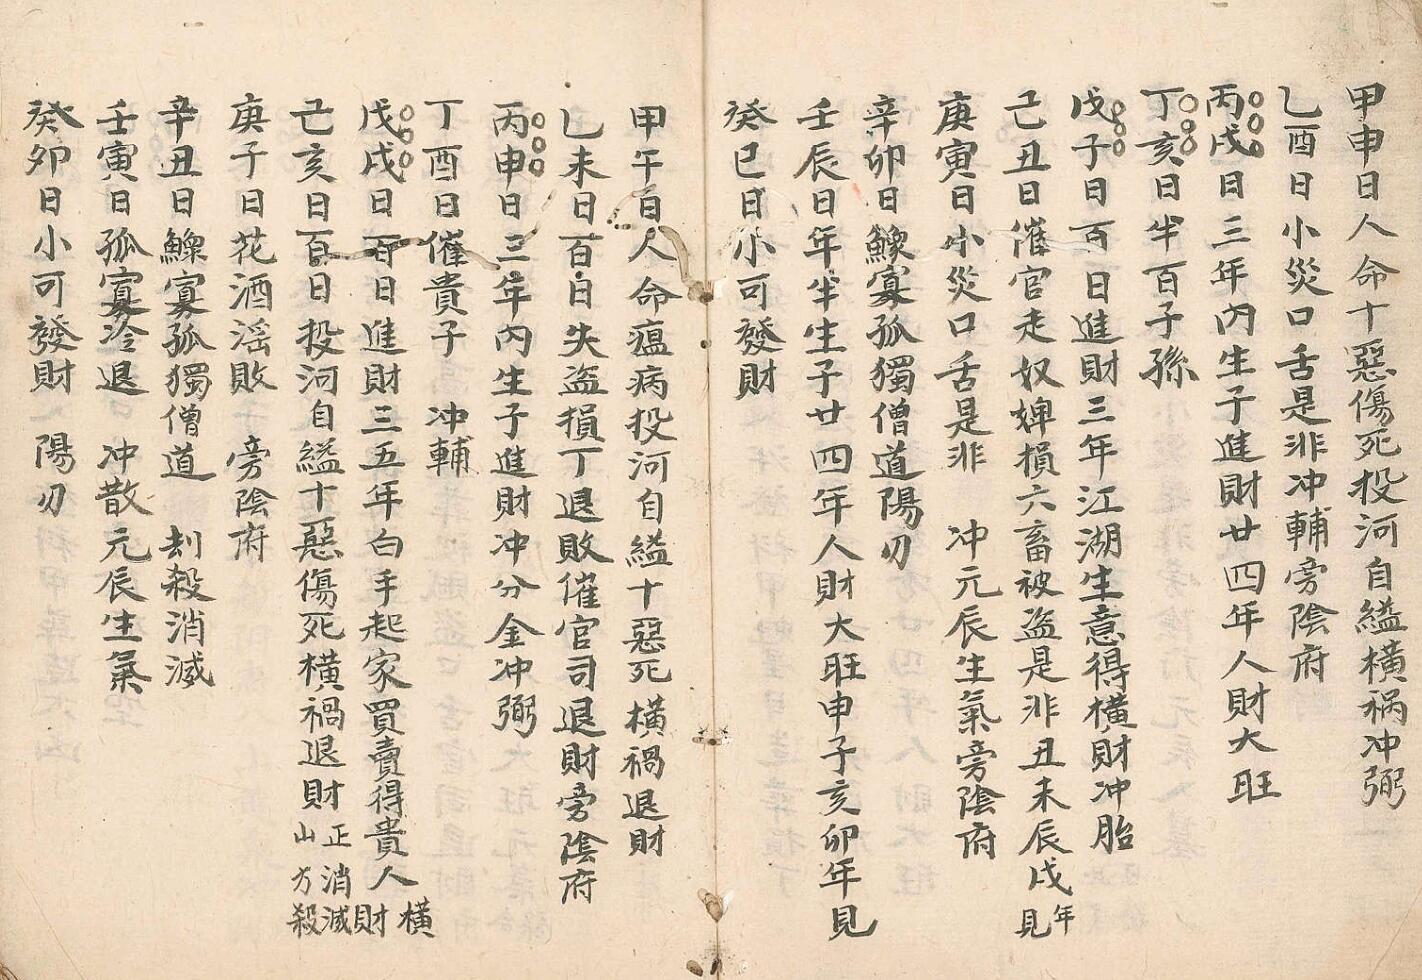 甲申日人命十惡傷死投河自縊橫禍冲弼
乙酉日小災口舌是非冲輔旁陰府
丙戌日三年內生子進財廿四年人財大旺
丁亥日半百子孫
戊子日百日進財三年江湖生意得橫財冲胎
己丑日催官走奴婢損六畜被盜是非丑未辰戌年見
庚寅日小災口舌是非 冲元辰生氣旁陰府
辛卯日鰥寡孤獨僧道陽刃
壬辰日年半生子廿四年人財大旺申子亥卯年見
癸巳日小可發財
甲午日人命瘟病投河自縊十惡死橫禍退財
乙未日百日失盜損丁退敗催官司退財旁陰府
丙申日三年內生子進財冲分金冲弼
丁酉日催貴子 冲輔
戊戌日百日進財三五年白手起家買賣得貴人橫財
己亥日百日投河自縊十惡傷死橫禍退財正消滅山方殺
庚子日花酒淫敗 旁陰府
辛丑日鰥寡孤獨僧道 刦殺消滅
壬寅日孤寡冷退 冲散元辰生氣
癸卯日小可發財 陽刃